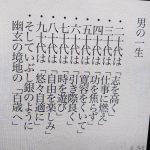 男の一生
十代は「志を高く」
二十代は「仕事に燃え」
三十代は「功を焦らず」
四十代は
五十代は
六十代は「引き際良く」
七十代は「時を遊び」
八十代は「自由を楽しみ」
九十代は「悠々自適に」
そしていぶし銀のように
幽玄の境地の 百歳へ